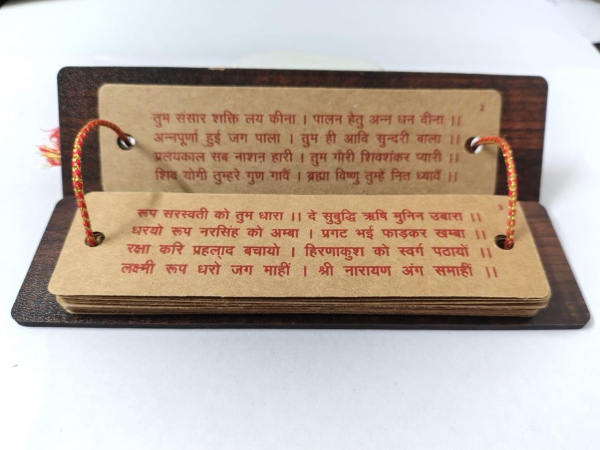 2
तुम संसार शक्ति लय कीना । पालन हेतु अन्न धन दीना ।।
अन्नपूर्णा हुई जग पाला । तुम ही आदि सुन्दरी बाला ।।
प्रलयकाल सब नाशन हारी । तुम गौरी शिवशंकर प्यारी ।।
शिव योगी तुम्हरे गुण गावैं । ब्रह्मा विष्णु तुम्हें नित ध्यावैं ।।
3
रूप सरस्वती को तुम धारा ।। दे सुबुद्धि ऋषि मुनिन उबारा ।।
धरयो रूप नरसिंह को अम्बा । प्रगट भई फाड़कर खम्बा ।।
रक्षा करि प्रहलाद बचायो । हिरणाकुश को स्वर्ग पठायों ।।
लक्ष्मी रूप धरो जग माहीं । श्री नारायण अंग समाहीं ।।